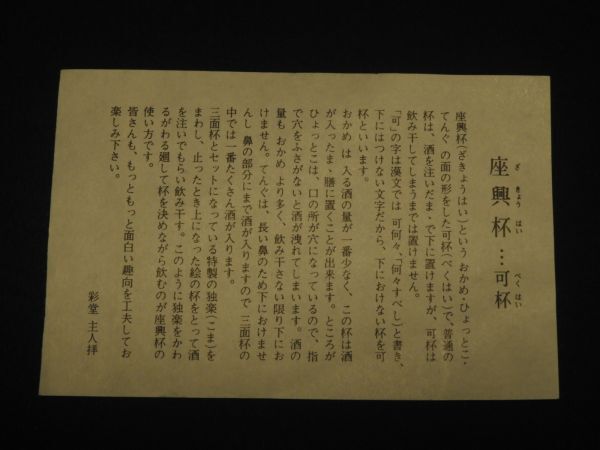 座興杯…可杯
ざきょうはい
べくはい
座興杯(ざきょうはい)という おかめ・ひょっとこ・
てんぐ の面の形をした可杯(べくはい)で、普通の
杯は、酒を注いだまゝで下に置けますが、可杯は
飲み干してしまうまでは置けません。
「可」の字は漢文では 可何々、「何々すべし」と書き、
下にはつけない文字だから、下におけない杯を可
杯といいます。
おかめ は 入る酒の量が一番少なく、この杯は酒
が入ったまゝ膳に置くことが出来ます。ところが
ひょっとこは、口の所が穴になっているので、指
で穴をふさがないと酒が洩れてしまいます。酒の
量も おかめ より多く、飲み干さない限り下にお
けません。てんぐは、長い鼻のため下におけませ
んし 鼻の部分にまで酒が入りますので 三面杯の
中では一番たくさん酒が入ります。
三面杯とセットになっている特製の独楽(こま)を
まわし、止ったとき上になった絵の杯をとって酒
を注いでもらい飲み干す。このように独楽をかわ
るがわる廻して杯を決めながら飲むのが座興杯の
使い方です。
皆さんも、もっともっと面白い趣向を工夫してお
楽しみ下さい。
彩堂 主人拝